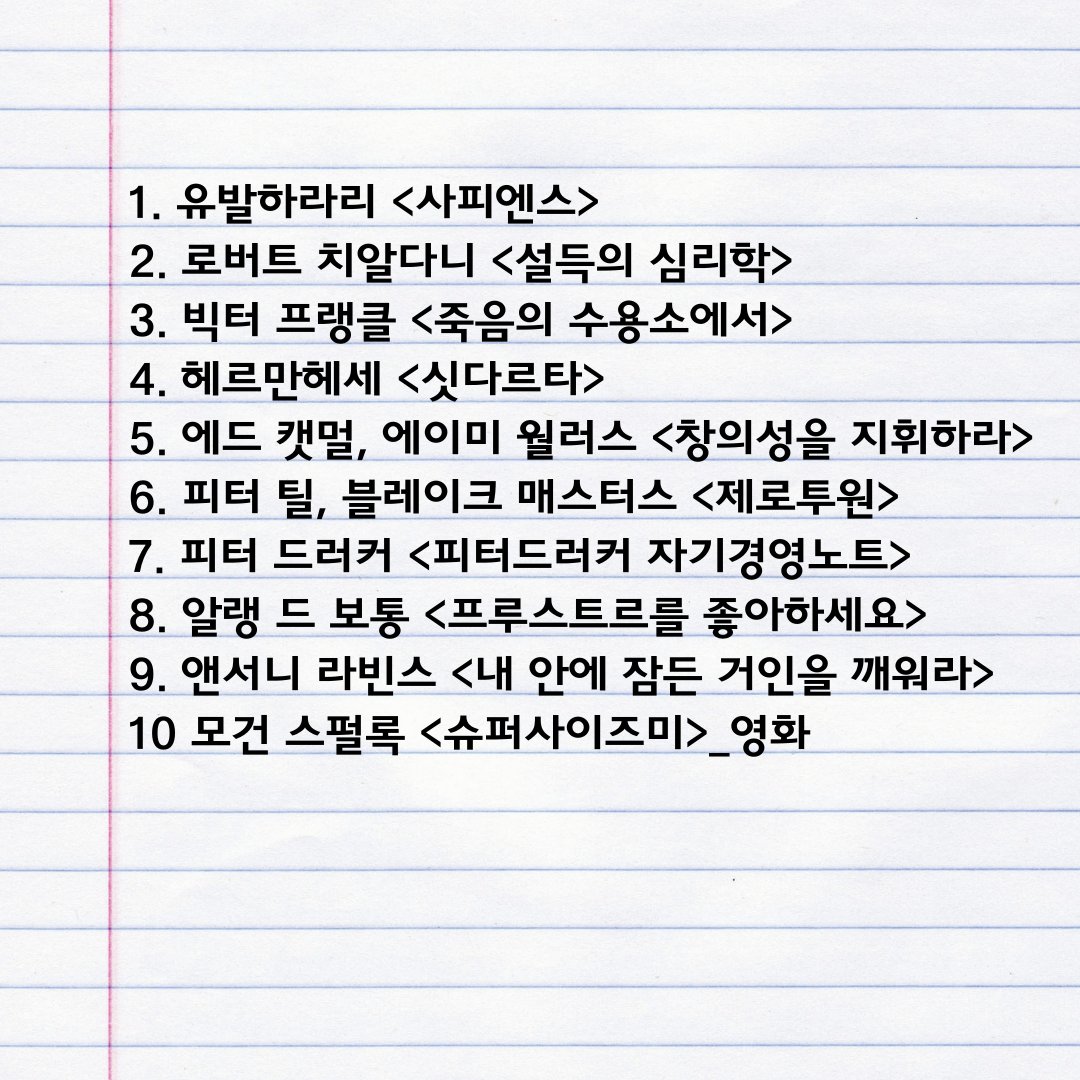 1. 유발하라리 <사피엔스>
2. 로버트 치알다니 <설득의 심리학>
3. 빅터 프랭클 <죽음의 수용소에서>
4. 헤르만헤세 <싯다르타>
5. 에드 캣멀, 에이미 월러스 <창의성을 지휘하라>
6. 피터 틸, 블레이크 매스터스 <제로투원>
7. 피터 드러커 <피터드러커 자기경영노트>
8. 알랭 드 보통 <프루스트르를 좋아하세요>
9. 앤서니 라빈스 <내 안에 잠든 거인을 깨워라>
10 모건 스펄록 <슈퍼사이즈미>_영화